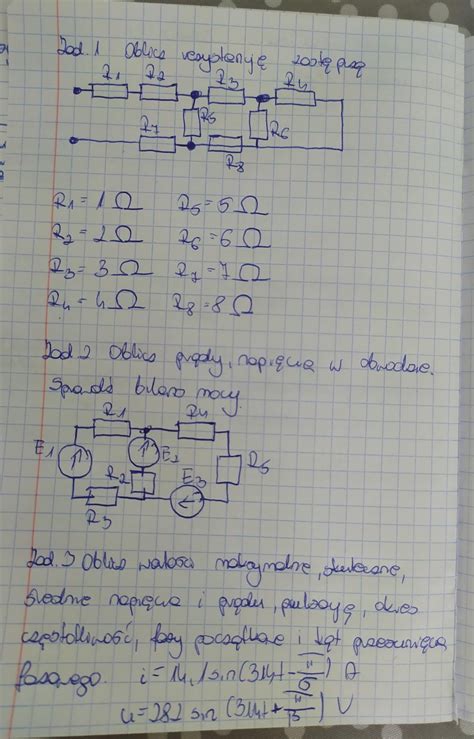 Zad. 1 Oblicz rezystancję zastępczą
R1 R2 R3 R4
R5 R6
R7 R8
R1 = 1 Ω R5 = 5 Ω
R2 = 2 Ω R6 = 6 Ω
R3 = 3 Ω R7 = 7 Ω
R4 = 4 Ω R8 = 8 Ω
Zad. 2 Oblicz prądy, napięcia w obwodzie.
Sprawdź bilans mocy.
R1 R4
E1 E2 R5
R2 E3
R3
Zad. 3 Oblicz wartości maksymalne, skuteczne,
średnie napięcia i prądu, pulsację, okres
częstotliwość, fazy początkowe i kąt przesunięcia
fazowego. i = 14,1 sin (314t - π/6) A
u = 282 sin (314t + π/3) V